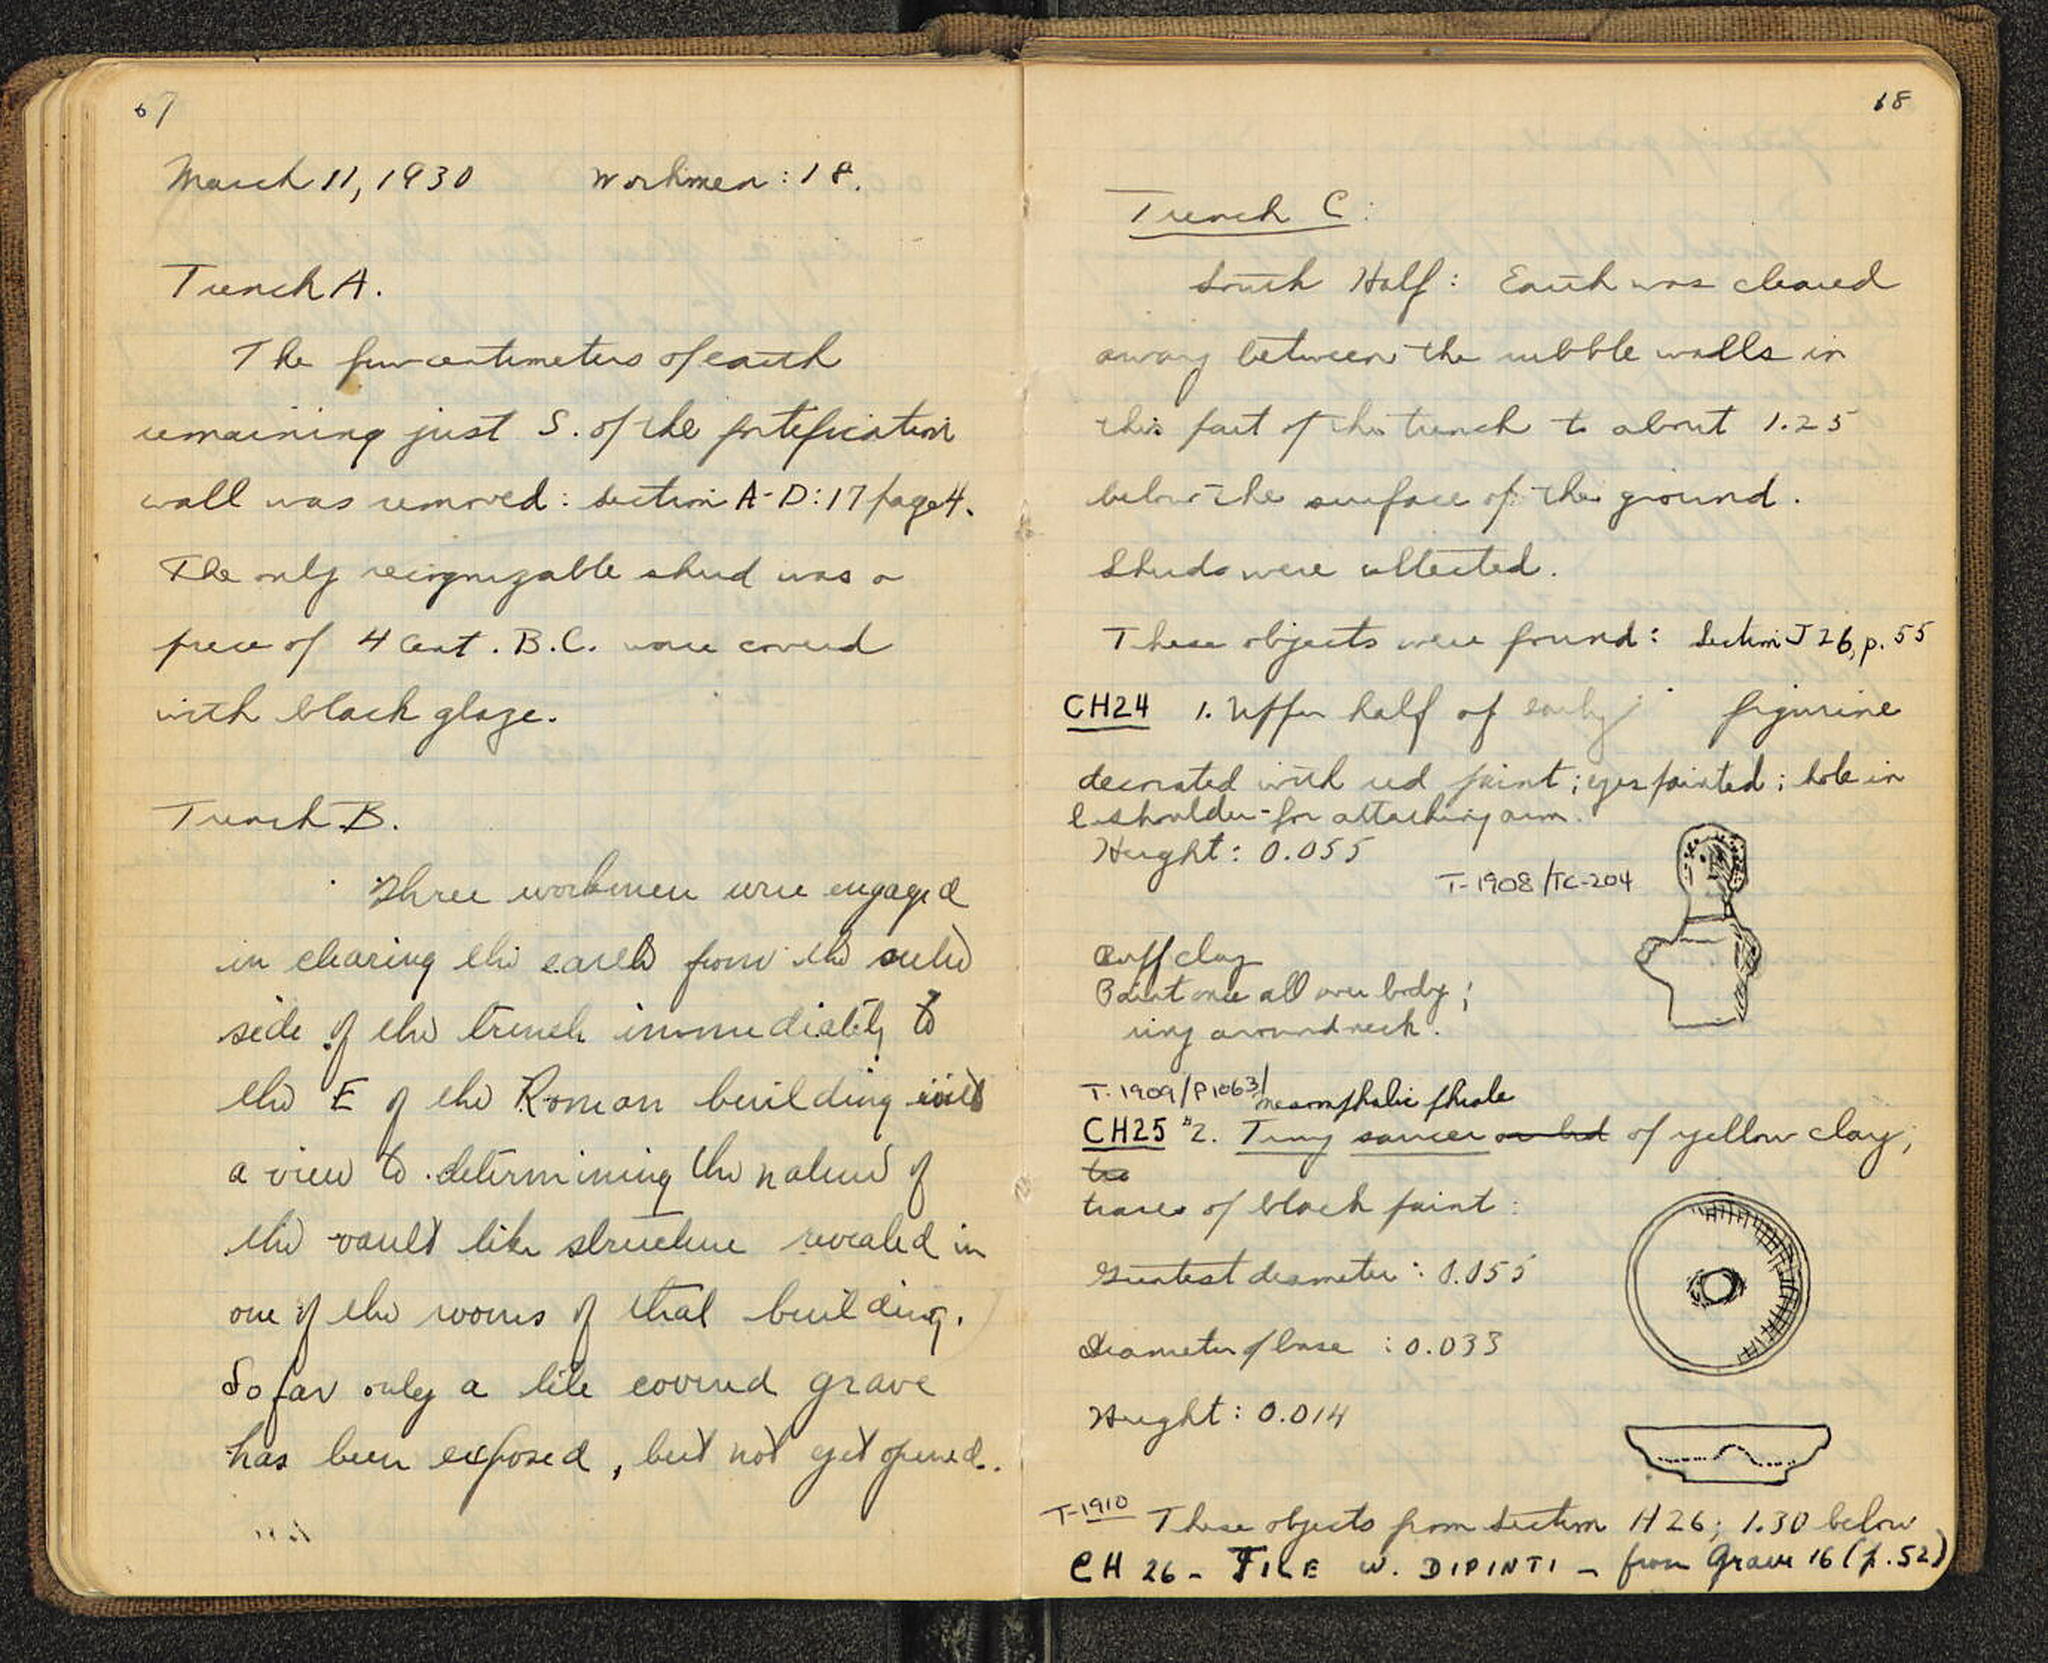 67
March 11, 1930 Workmen: 18.
Trench A.
The few centimeters of earth
remaining just S. of the fortification
wall was removed: section A-D:17 page 4.
The only recognizable sherd was a
piece of 4 Cent. B.C. ware covered
with black glaze.
Trench B.
Three workmen were engaged
in clearing the earth from the
side of the trench immediately to
the E of the Roman building with
a view to determining the nature of
the vault like structure revealed in
one of the rooms of that building.
So far only a tile covered grave
has been exposed, but not yet opened.
68
Trench C:
South Half: Earth was cleared
away between the rubble walls in
this part of the trench to about 1.25
below the surface of the ground.
Sherds were collected.
These objects were found: Section J 26, p. 55
CH24 1. Upper half of early figurine
decorated with red paint; eyes painted; hole in
l. shoulder - for attaching arm.
Height: 0.055
T-1908/TC-204
Buff clay
Paint once all over body;
ring around neck.
T-1909/P1063/mesomphalic phiale
CH25 2. Tiny saucer or lid of yellow clay;
tra
traces of black paint:
Greatest diameter: 0.055
Diameter of base: 0.033
Height: 0.014
T-1910 These objects from Section H 26; 1.30 below
CH 26 - TILE W. DIPINTI - from Grave 16 (p. 52)